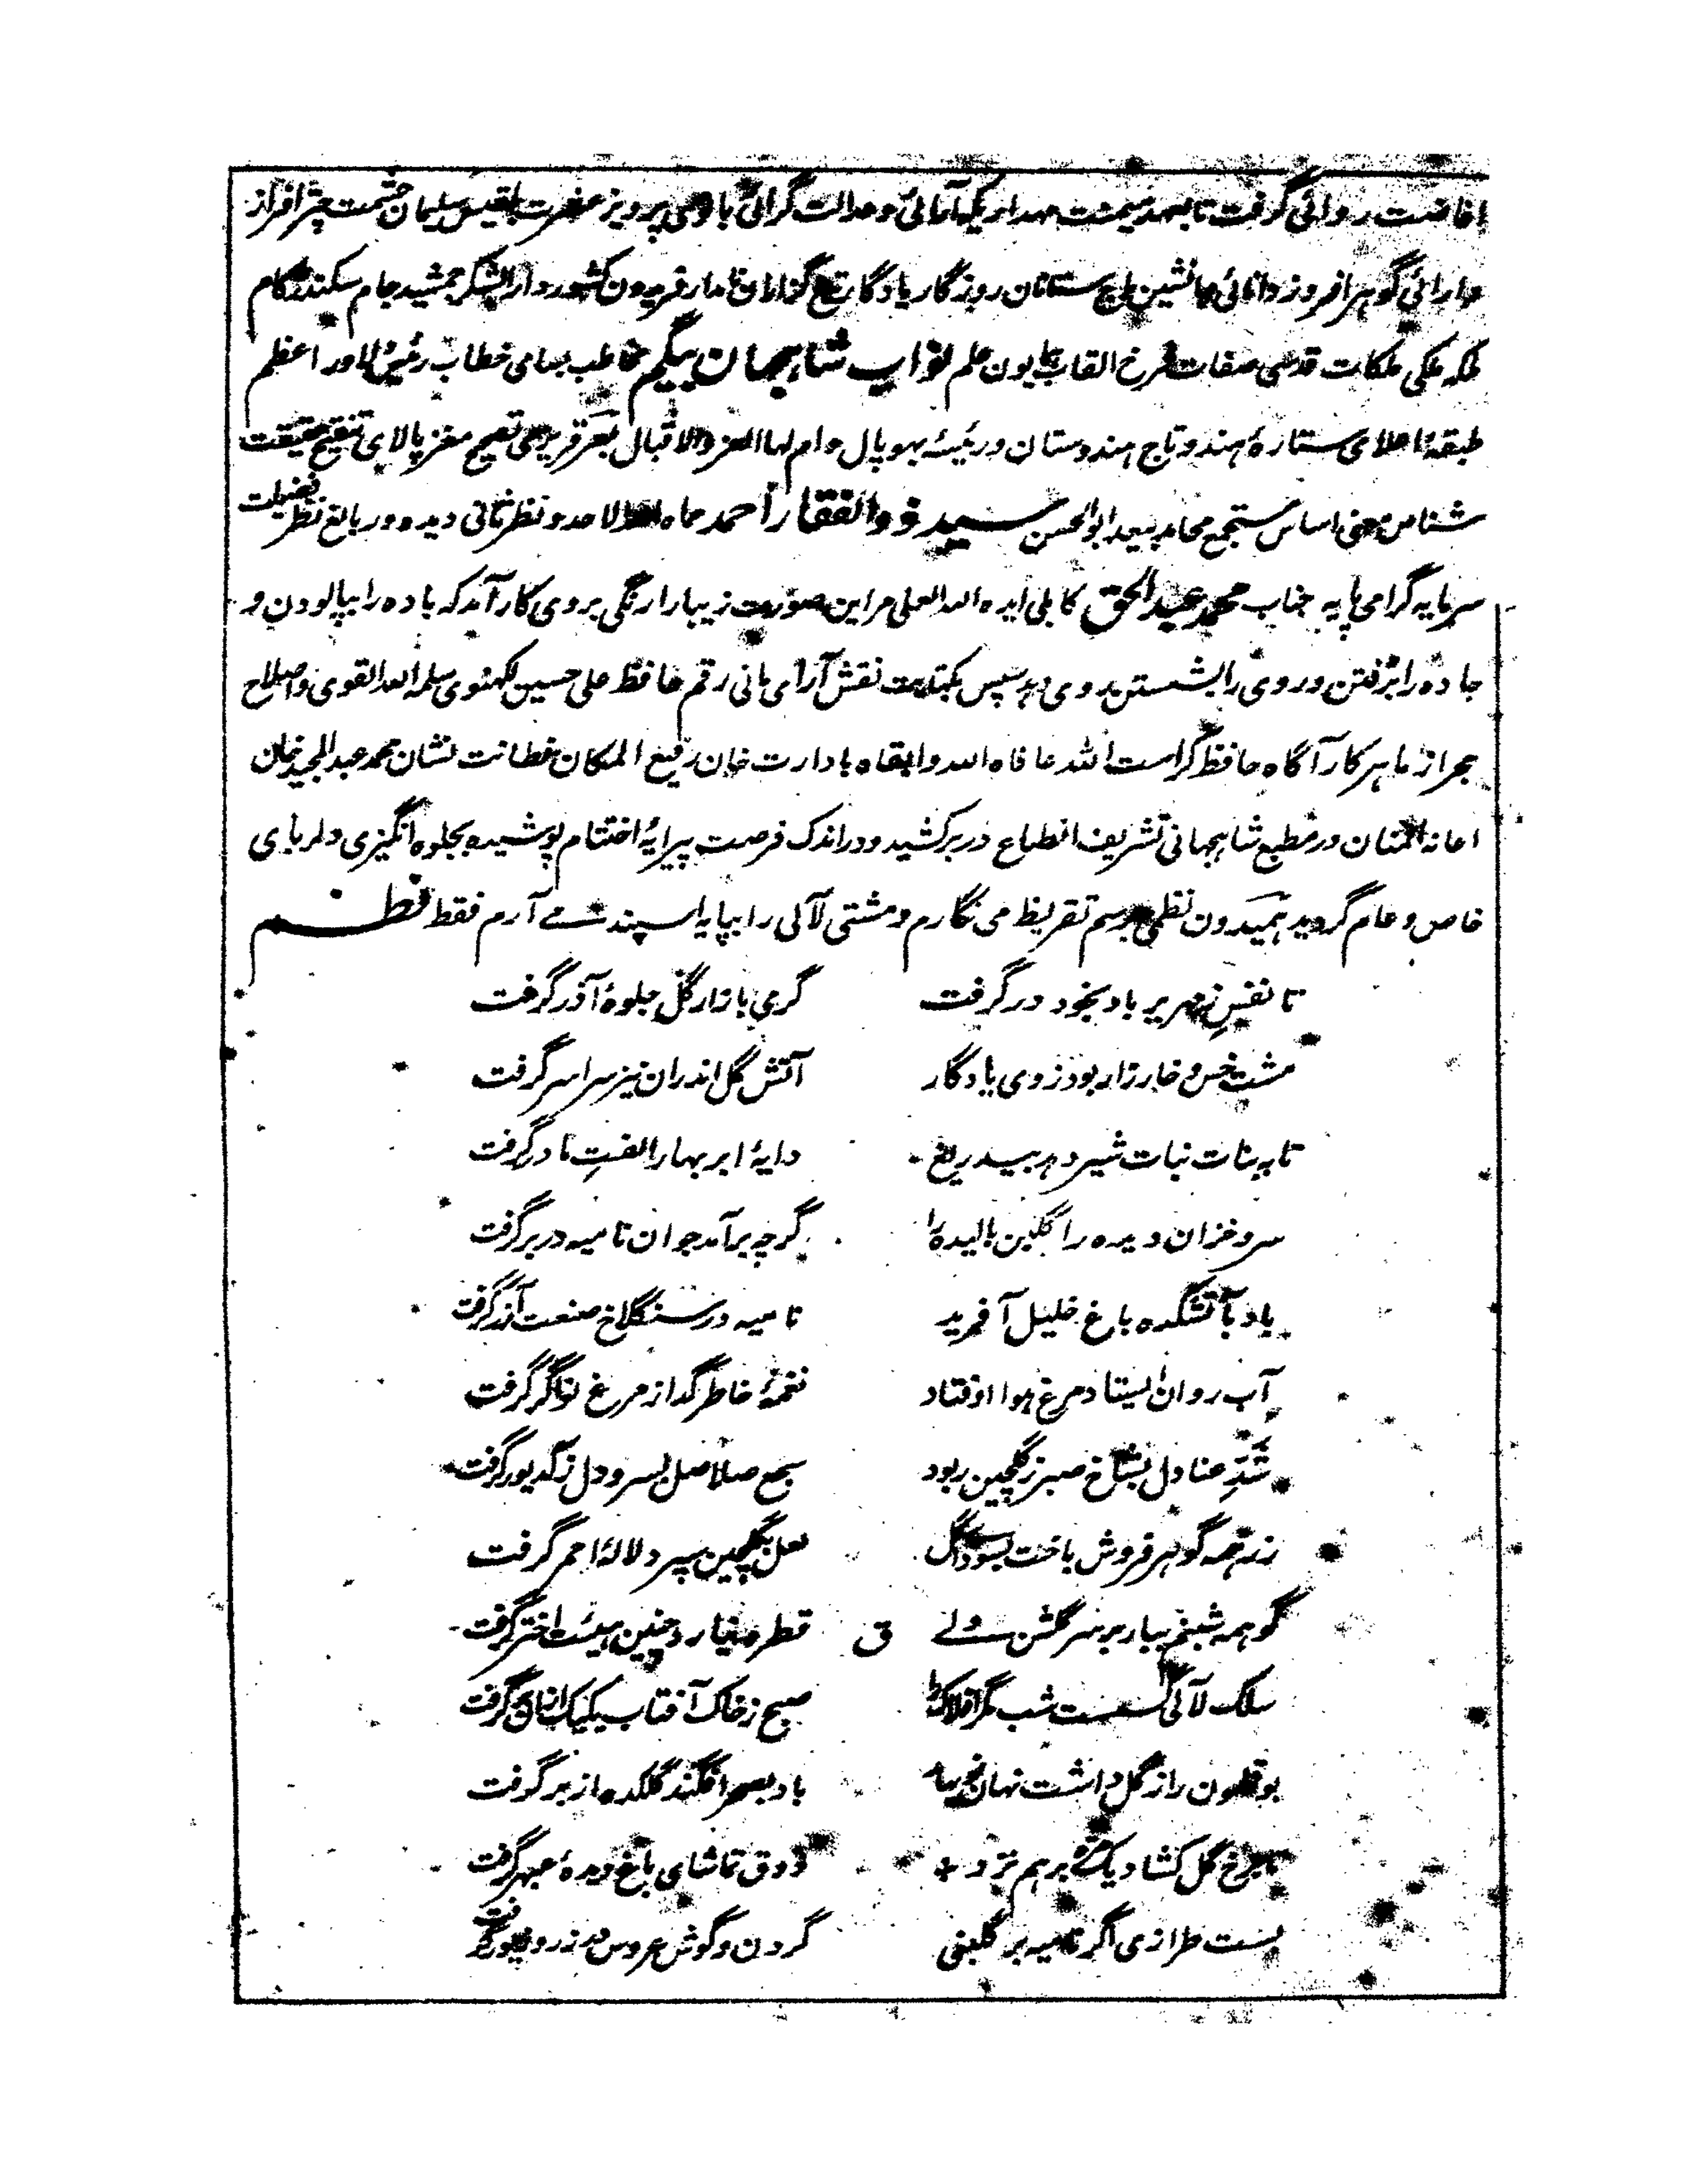 افاضت روائی گرفت تا بعهد میمنت مهد اورنگ آرائی و عدالت گرائی بانوی پرویز عشرت بلقیس سلیمان حشمت چتر افراز
دارائی گوهر افروز دانائی جانشین باج ستانان روزگار یادگار تیغ گزاران نامدار فریدون کشور دارا لشکر جمشید جام سکندر کام
ملکه ملکی ملکات قدسی صفات فرخ القاب همایون علم نواب شاهجهان بیگم مخاطب بسامی خطاب رئیس دلاور اعظم
طبقهٔ اعلای ستارهٔ هند و تاج هندوستان و رئیسهٔ بهوپال دام لها العز والاقبال بعرقریزی تصحیح مغز پالای تنقیح حقیقت
شناس معنی اساس مستجمع محامد سعد ابوالحسن سید ذوالفقار احمد حماه الاحد و نظر ثانی دیده ور بالغ نظر فضیلت
سرمایه گرامی پایه جناب محمد عبدالحق کابلی ایده الله العلی مر این صورت زیبا را رنگی بروی کار آمد که باده را بپالودن و
جاده را برفتن و روی را بشستن بدوی دهد سپس بکتابت نقش آرای مانی رقم حافظ علی حسین لکهنوی سلمه الله القوی و اصلاح
حجر از ماهر کار آگاه حافظ کرامت الله عافاه الله وابقاه بادارت خان رفیع المکان فطانت نشان محمد عبدالمجید خان
اعانه المنان در مطبع شاهجهانی تشریف انطباع در بر کشید و در اندک فرصت پیرایهٔ اختتام پوشیده بجلوه انگیزی دلربای
خاص و عام گردید همیدون نظمی برسم تقریظ می نگارم و مشتی لآلی را بپایه اسپند می آرم فقط نظم
تا نفس زمهریر باد بخود در گرفت گرمی بازار گل جلوهٔ آذر گرفت
مشت خس و خار زار بود ز وی یادگار آتش گل اندران نیز سراسر گرفت
تا به بنات نبات شیر دهد بیدریغ دایهٔ ابر بهار الفت مادر گرفت
سرو خزان دیده را گلبن بالیده را گرچه برآمد جوان نامیه در بر گرفت
باد بآتشکده باغ خلیل آفرید نامیه در سنگلاخ صنعت آذر گرفت
آب روان ایستاد مرغ هوا اوفتاد نغمهٔ خاطر گداز مرغ نواگر گرفت
شد عنادل بشاخ صبر ز گلچین ربود سجع صلاصل بسرو دل ز کدیور گرفت
زر همه گوهر فروش باخت بسودای گل لعل بگلچین سپرد لالهٔ احمر گرفت
گو همه شبنم ببار بر سر گلشن ولے ق قطره نیارد چنین هیئت اختر گرفت
سلک لآلی گسست شب مگر افلاک را صبح ز خاک آفتاب یکیک گرفت
بوقلمون راز گل داشت نهان باد بصحرا فکند گلکده از بر گرفت
تا رخ گل کشاد یک مژه برهم نزد ذوق تماشای باغ دیدهٔ عبهر گرفت
بست طرازی اگر نامیه بر گلبنی گردن و گوش عروس در زر و زیور گرفت